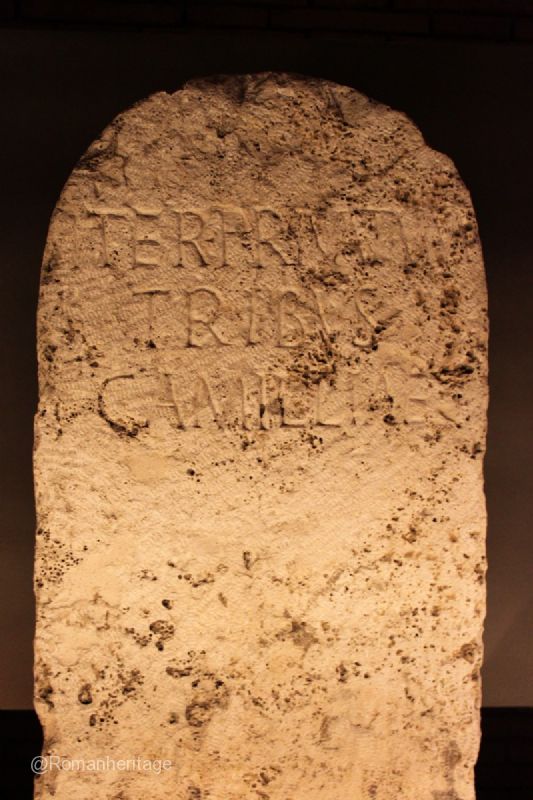 TER PRIVATV
TRIBVS
CAMILLIAE
@Romanheritage